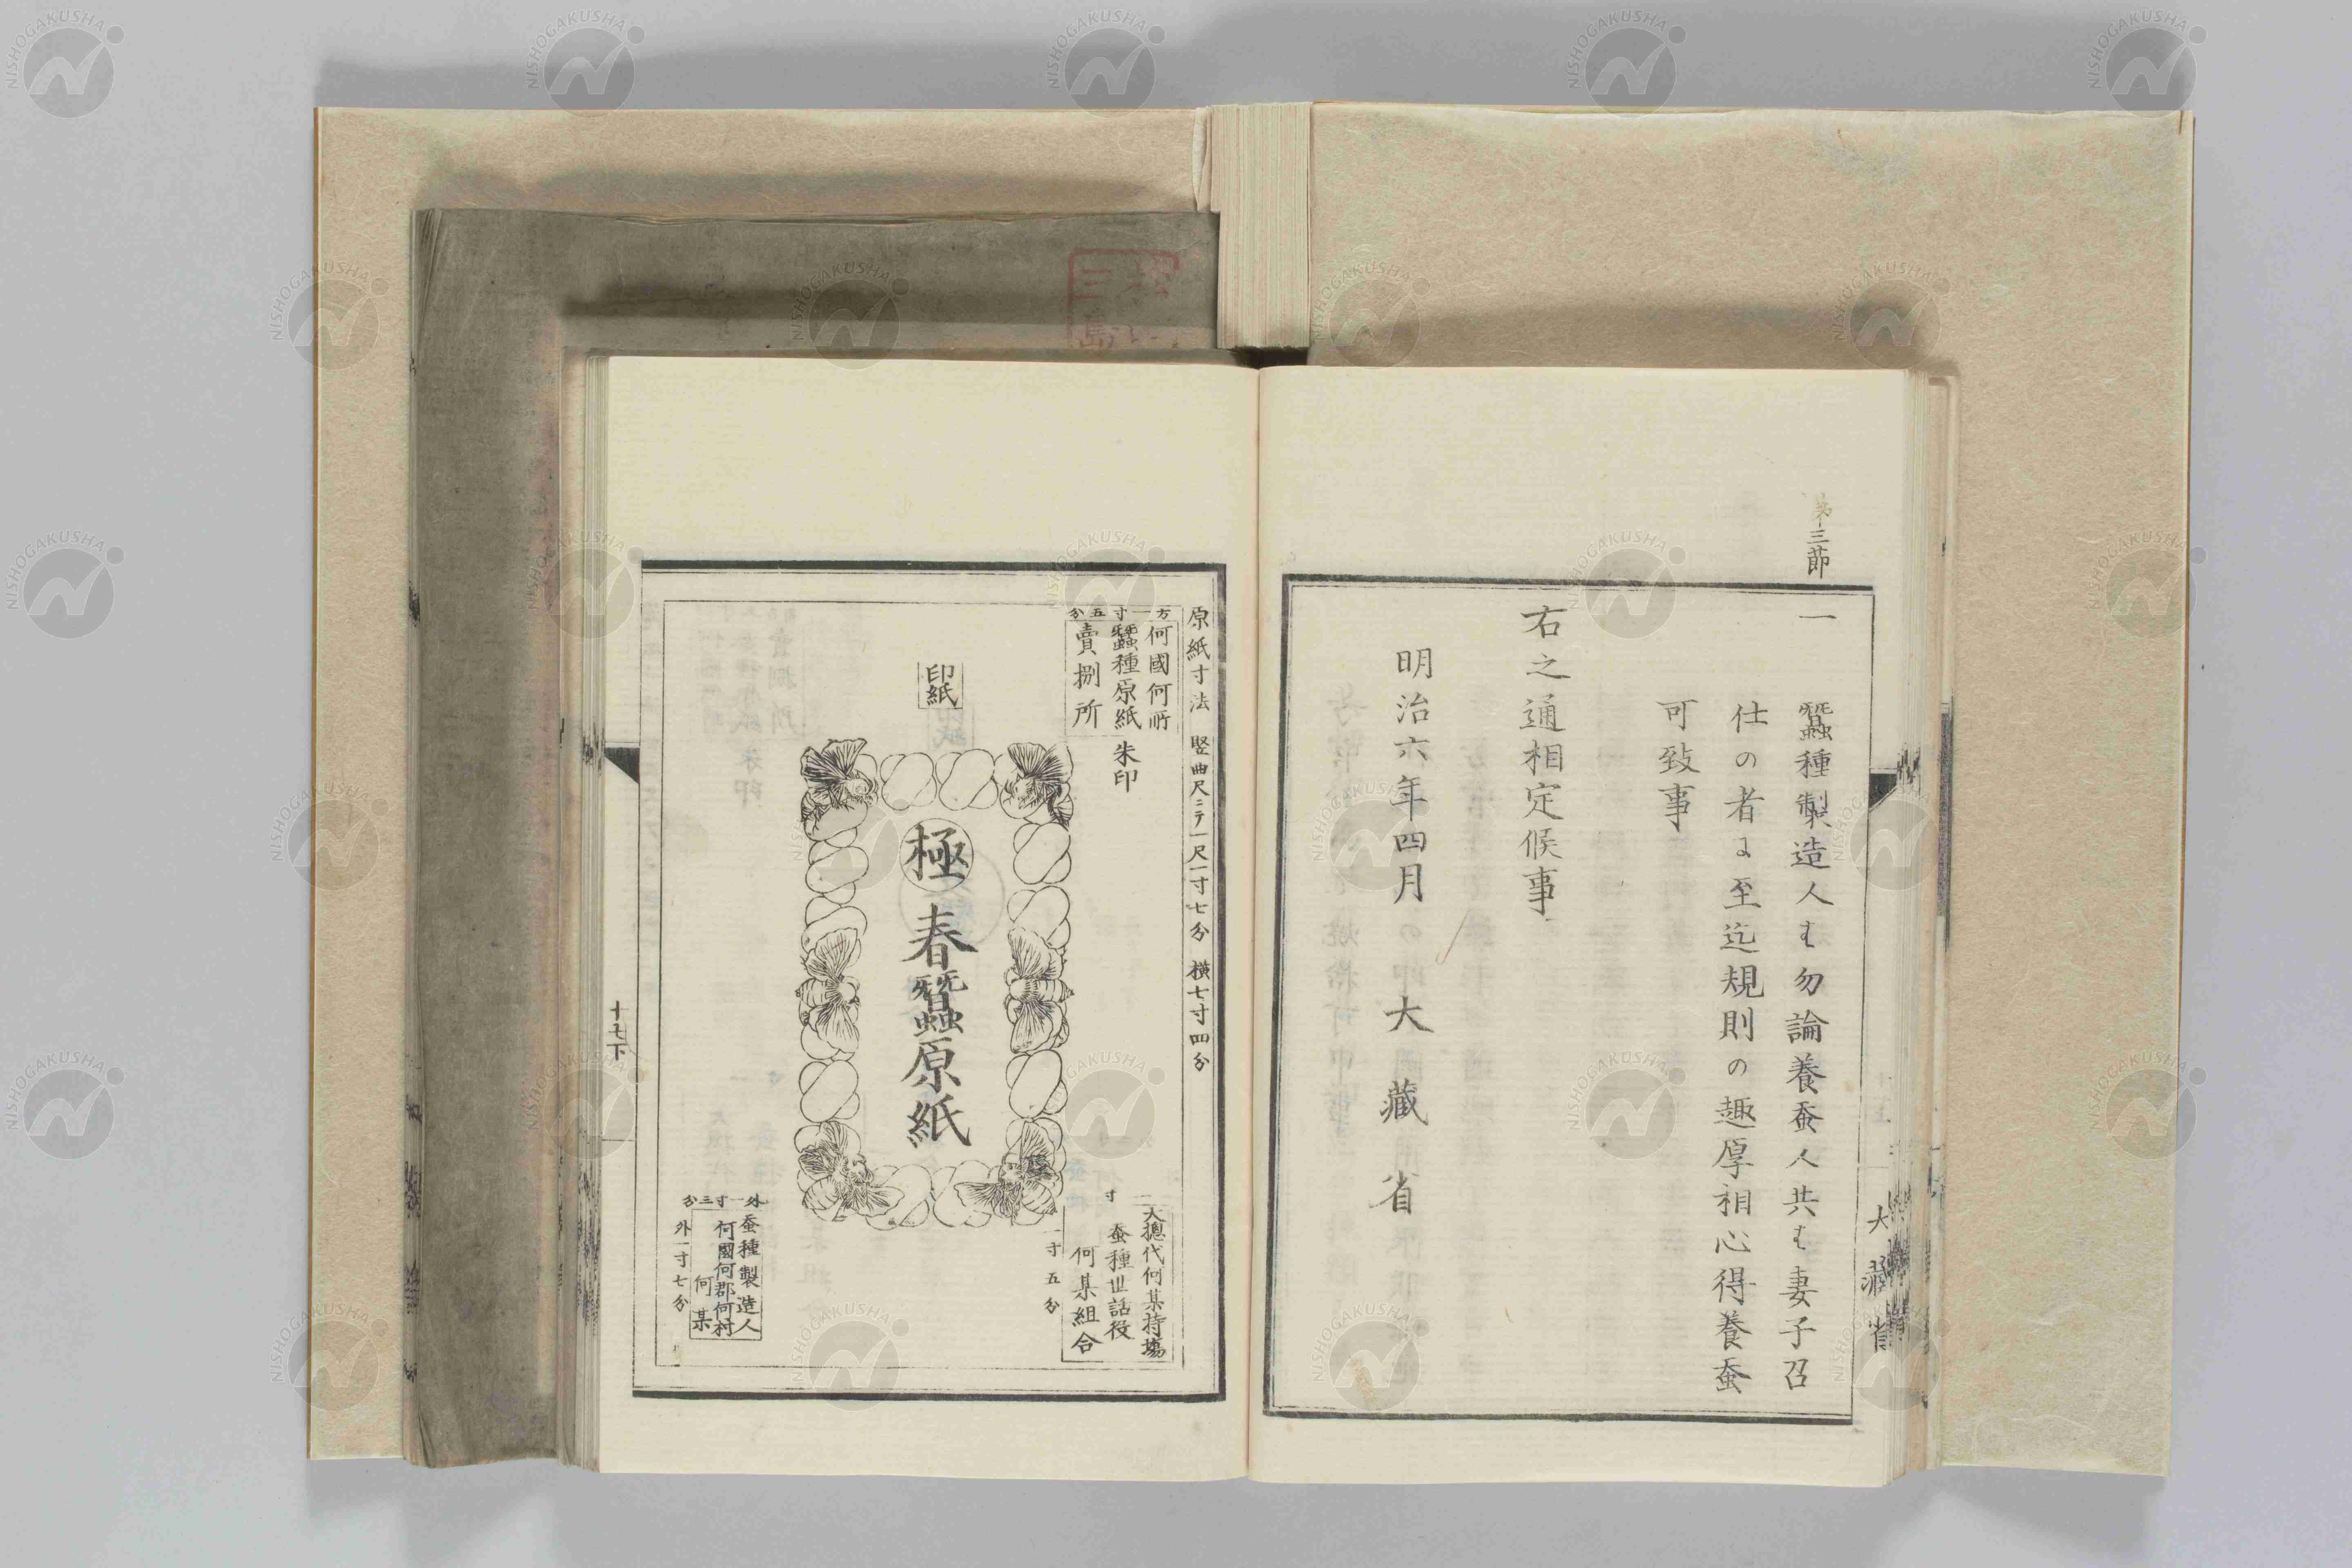 第三節
一
蠶種製造人ハ勿論養蚕人共ハ妻子召
仕の者ニ至迄規則の趣厚相心得養蚕
可致事
右之通相定候事
明治六年四月
大藏省
大藏省
原紙寸法 竪曲尺ニテ一尺一寸七分 横七寸四分
方一寸五分
何國何所
蠶種原紙
賣捌所
朱印
印紙
極
春蠶原紙
大總代何某持塲
蚕種世話役
何某組合
一寸五分
外一寸三分
蚕種製造人
何國何郡何村
何某
外一寸七分
十七下
NISHOGAKUSHA